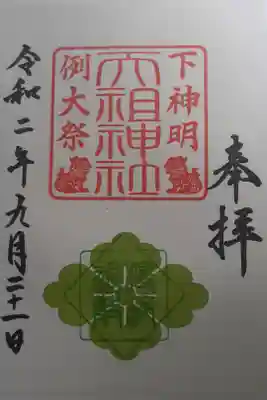 奉拝
下神明
天祖神社
例大祭
令和二年九月二十一日